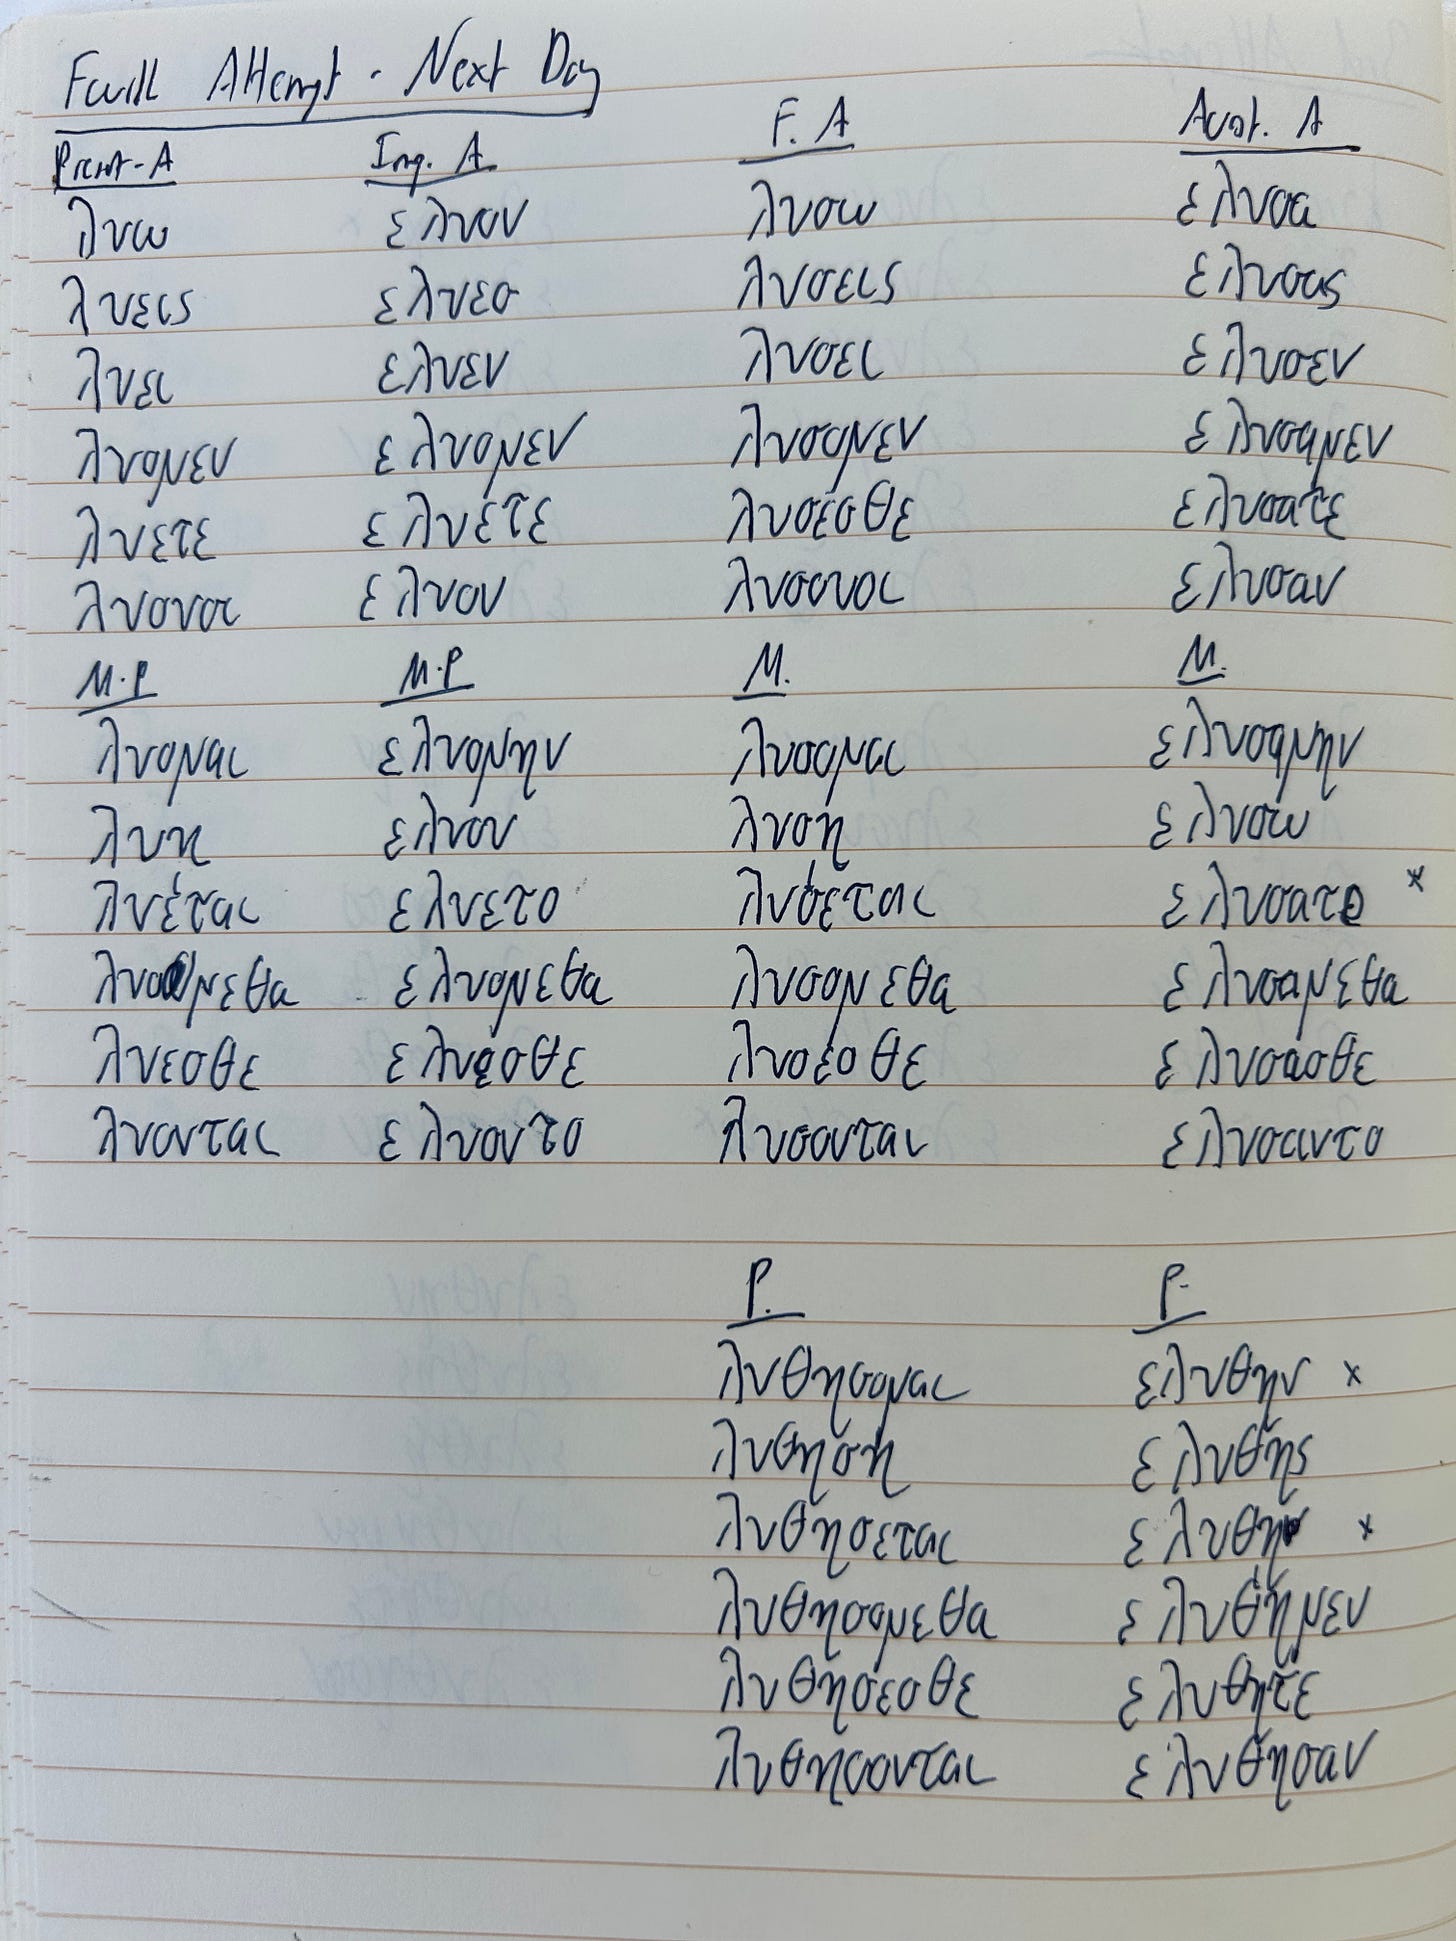 Attempt - Next Day
Present-A Imp. A F. A Aorist. A
λυω ε λυον λυσω ε λυσα
λυεις ε λυεσ λυσεις ε λυσας
λυει ελυεν λυσει ε λυσεν
λυομεν ε λυομεν λυσομεν ε λυσαμεν
λυετε ε λυετε λυσεσθε ε λυσατε
λυουσι ε λυον λυσουσι ε λυσαν
M.P M.P M. M.
λυομαι ε λυομην λυσομαι ε λυσαμην
λυη ελυου λυση ε λυσω
λυεται ε λυετο λυσεται ε λυσατο *
λυομεθα ε λυομεθα λυσομεθα ε λυσαμεθα
λυεσθε ε λυεσθε λυσεσθε ε λυσασθε
λυονται ε λυοντο λυσονται ε λυσαντο
P. P.
λυθησομαι ελυθην x
λυθηση ε λυθης
λυθησεται ε λυθη x
λυθησομεθα ε λυθημεν
λυθησεσθε ε λυθητε
λυθησονται ε λυθησαν